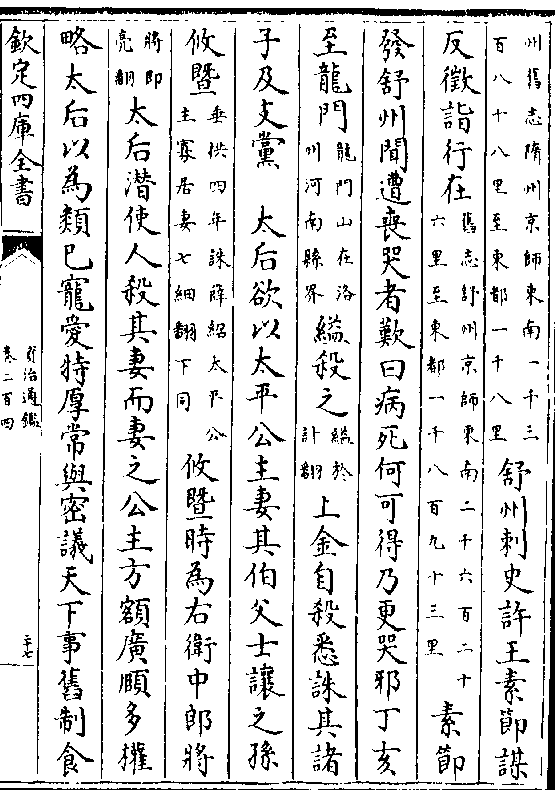 州舊志隋州京師東南一千三
百八十八里至東都一千八里
舒州刺史許王素節謀
反徵詣行在
舊志舒州京師東南二千六百二十
六里至東都一千八百九十三里
素節
發舒州聞遭喪哭者歎曰病死何可得乃更哭邪丁亥
至龍門
龍門山在洛
州河南縣界
縊殺之
縊於
計翻
上金自殺悉誅其諸
子及支黨　太后欲以太平公主妻其伯父士讓之孫
攸暨
垂拱四年誅薛紹太平公
主寡居妻七細翻下同
攸暨時為右衛中郎將
將即
亮翻
太后潛使人殺其妻而妻之公主方額廣頤多權
略太后以為類已寵愛特厚常與密議天下事舊制食
欽定四庫全書
資治通鑑
卷二百四
三七